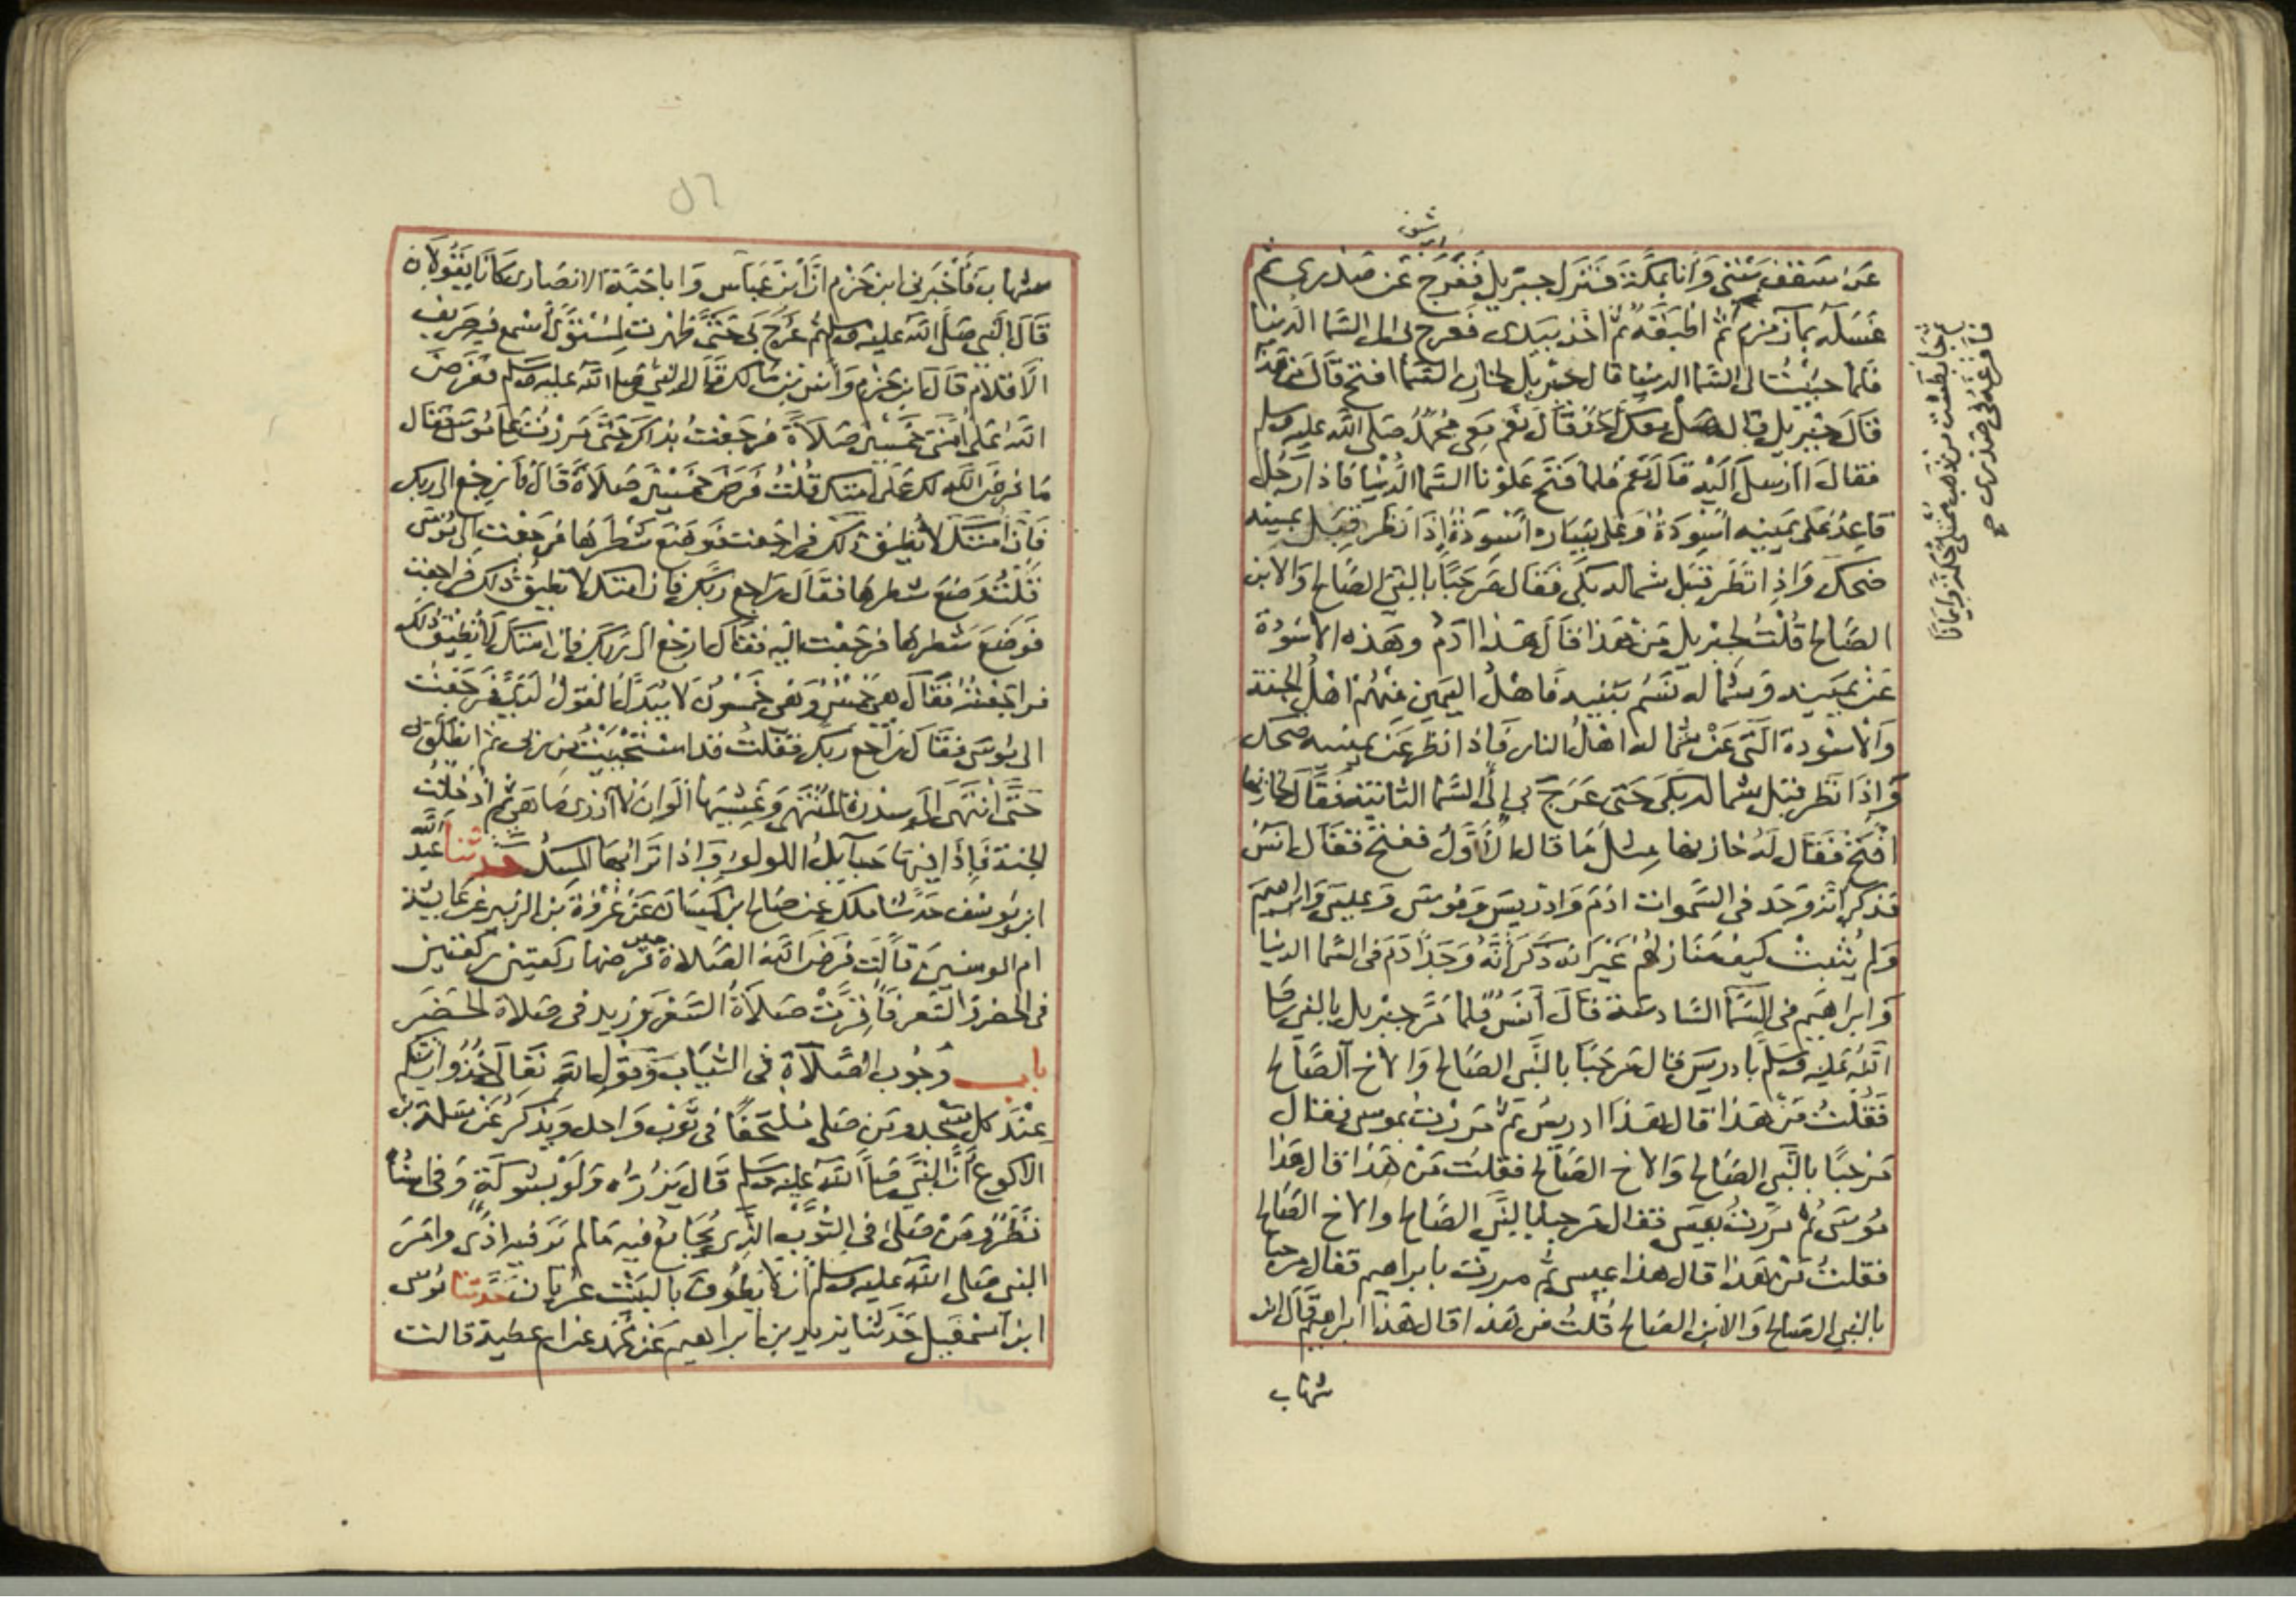 عن سقف بيتي وأنا بمكة فنزل جبريل ففرج عن صدري ثم
غسله بماء زمزم ثم أطبقه ثم أخذ بيدي فعرج بي الى السما الدنيا
فلما جئت الى السما الدنيا قال جبريل لخازن السما افتح قال من هذا
قال جبريل قال هل معك أحد قال نعم معي محمد صلى الله عليه وسلم
فقال أارسل اليه قال نعم فلما فتح علونا السما الدنيا فاذا رجل
قاعد على يمينه أسودة وعلى يساره أسودة إذا نظر قبل يمينه
ضحك وإذا نظر قبل شماله بكى فقال مرحبا بالنبي الصالح والابن
الصالح قلت لجبريل من هذا قال هذا آدم وهذه الاسودة
عن يمينه وشماله نسم بنيه فأهل اليمين منهم أهل الجنة
والاسودة التي عن شماله أهل النار فإذا نظر عن يمينه ضحك
وإذا نظر قبل شماله بكى حتى عرج بي إلى السما الثانية فقال لخازنها
افتح فقال له خازنها مثل ما قال الأول ففتح فقال أنس
فذكر أنه وجد في السموات ادم وادريس وموسى وعيسى وابراهيم
ولم يثبت كيف منازلهم غير أنه ذكر أنه وجد آدم في السما الدنيا
وابراهيم في السما السادسة قال أنس فلما مر جبريل بالنبي صلى
الله عليه وسلم بادريس قال مرحبا بالنبي الصالح والاخ الصالح
فقلت من هذا قال هذا ادريس ثم مررت بموسى فقال
مرحبا بالنبي الصالح والاخ الصالح فقلت من هذا قال هذا
موسى ثم مررت بعيسى فقال مرحبا بالنبي الصالح والاخ الصالح
فقلت من هذا قال هذا عيسى ثم مررت بابراهيم فقال مرحبا
بالنبي الصالح والابن الصالح قلت من هذا قال هذا ابراهيم قال ابن
شهاب
ثم جا بطست من ذهب ممتلئ حكمة وايمانا
فافرغه في صدري صح
٥٦
شهاب فأخبرني ابن حزم أن ابن عباس وابا حبة الانصاري كانا يقولان
قال النبي صلى الله عليه وسلم ثم عرج بي حتى ظهرت لمستوى أسمع فيه صريف
الاقلام قال ابن حزم وأنس بن مالك قال النبي صلى الله عليه وسلم ففرض
الله على أمتي خمسين صلاة فرجعت بذلك حتى مررت على موسى فقال
ما فرض الله لك على امتك قلت فرض خمسين صلاة قال فارجع الى ربك
فان أمتك لا تطيق ذلك فراجعت فوضع شطرها فرجعت إلى موسى
قلت وضع شطرها فقال راجع ربك فان امتك لا تطيق ذلك فراجعت
فوضع شطرها فرجعت اليه فقال ارجع الى ربك فان امتك لا تطيق ذلك
فراجعته فقال هي خمس وهي خمسون لا يبدل القول لدي فرجعت
الى موسى فقال راجع ربك فقلت قد استحييت من ربي ثم انطلق بي
حتى انتهى الى سدرة المنتهى وغشيها ألوان لا أدري ما هي ثم أدخلت
الجنة فإذا فيها حبايل اللولو وإذا ترابها المسك حدثنا عبد الله
ابن يوسف حدثنا ملك عن صالح ابن كيسان عن عروة بن الزبير عن عايشة
ام المومنين قالت فرض الله الصلاة حين فرضها ركعتين ركعتين
في الحضر والسفر فأقرت صلاة السفر وزيد في صلاة الحضر
باب وجوب الصلاة في الثياب وقول الله تعالى خذوا زينتكم
عند كل مسجد ومن صلى ملتحفا في ثوب واحد ويذكر عن سلمة بن
الاكوع أن النبي صلى الله عليه وسلم قال يزره ولو بشوكة وفي اسناده
نظر ومن صلى في الثوب الذي يجامع فيه مالم ير فيه اذى وامر
النبي صلى الله عليه وسلم أن لا يطوف بالبيت عريان حدثنا موسى
ابن اسمعيل حدثنا يزيد بن ابراهيم عن محمد عن ام عطية قالت